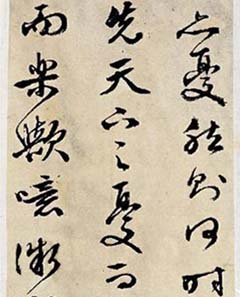 亦憂然則何時
先天下之憂而
而樂歟噫微